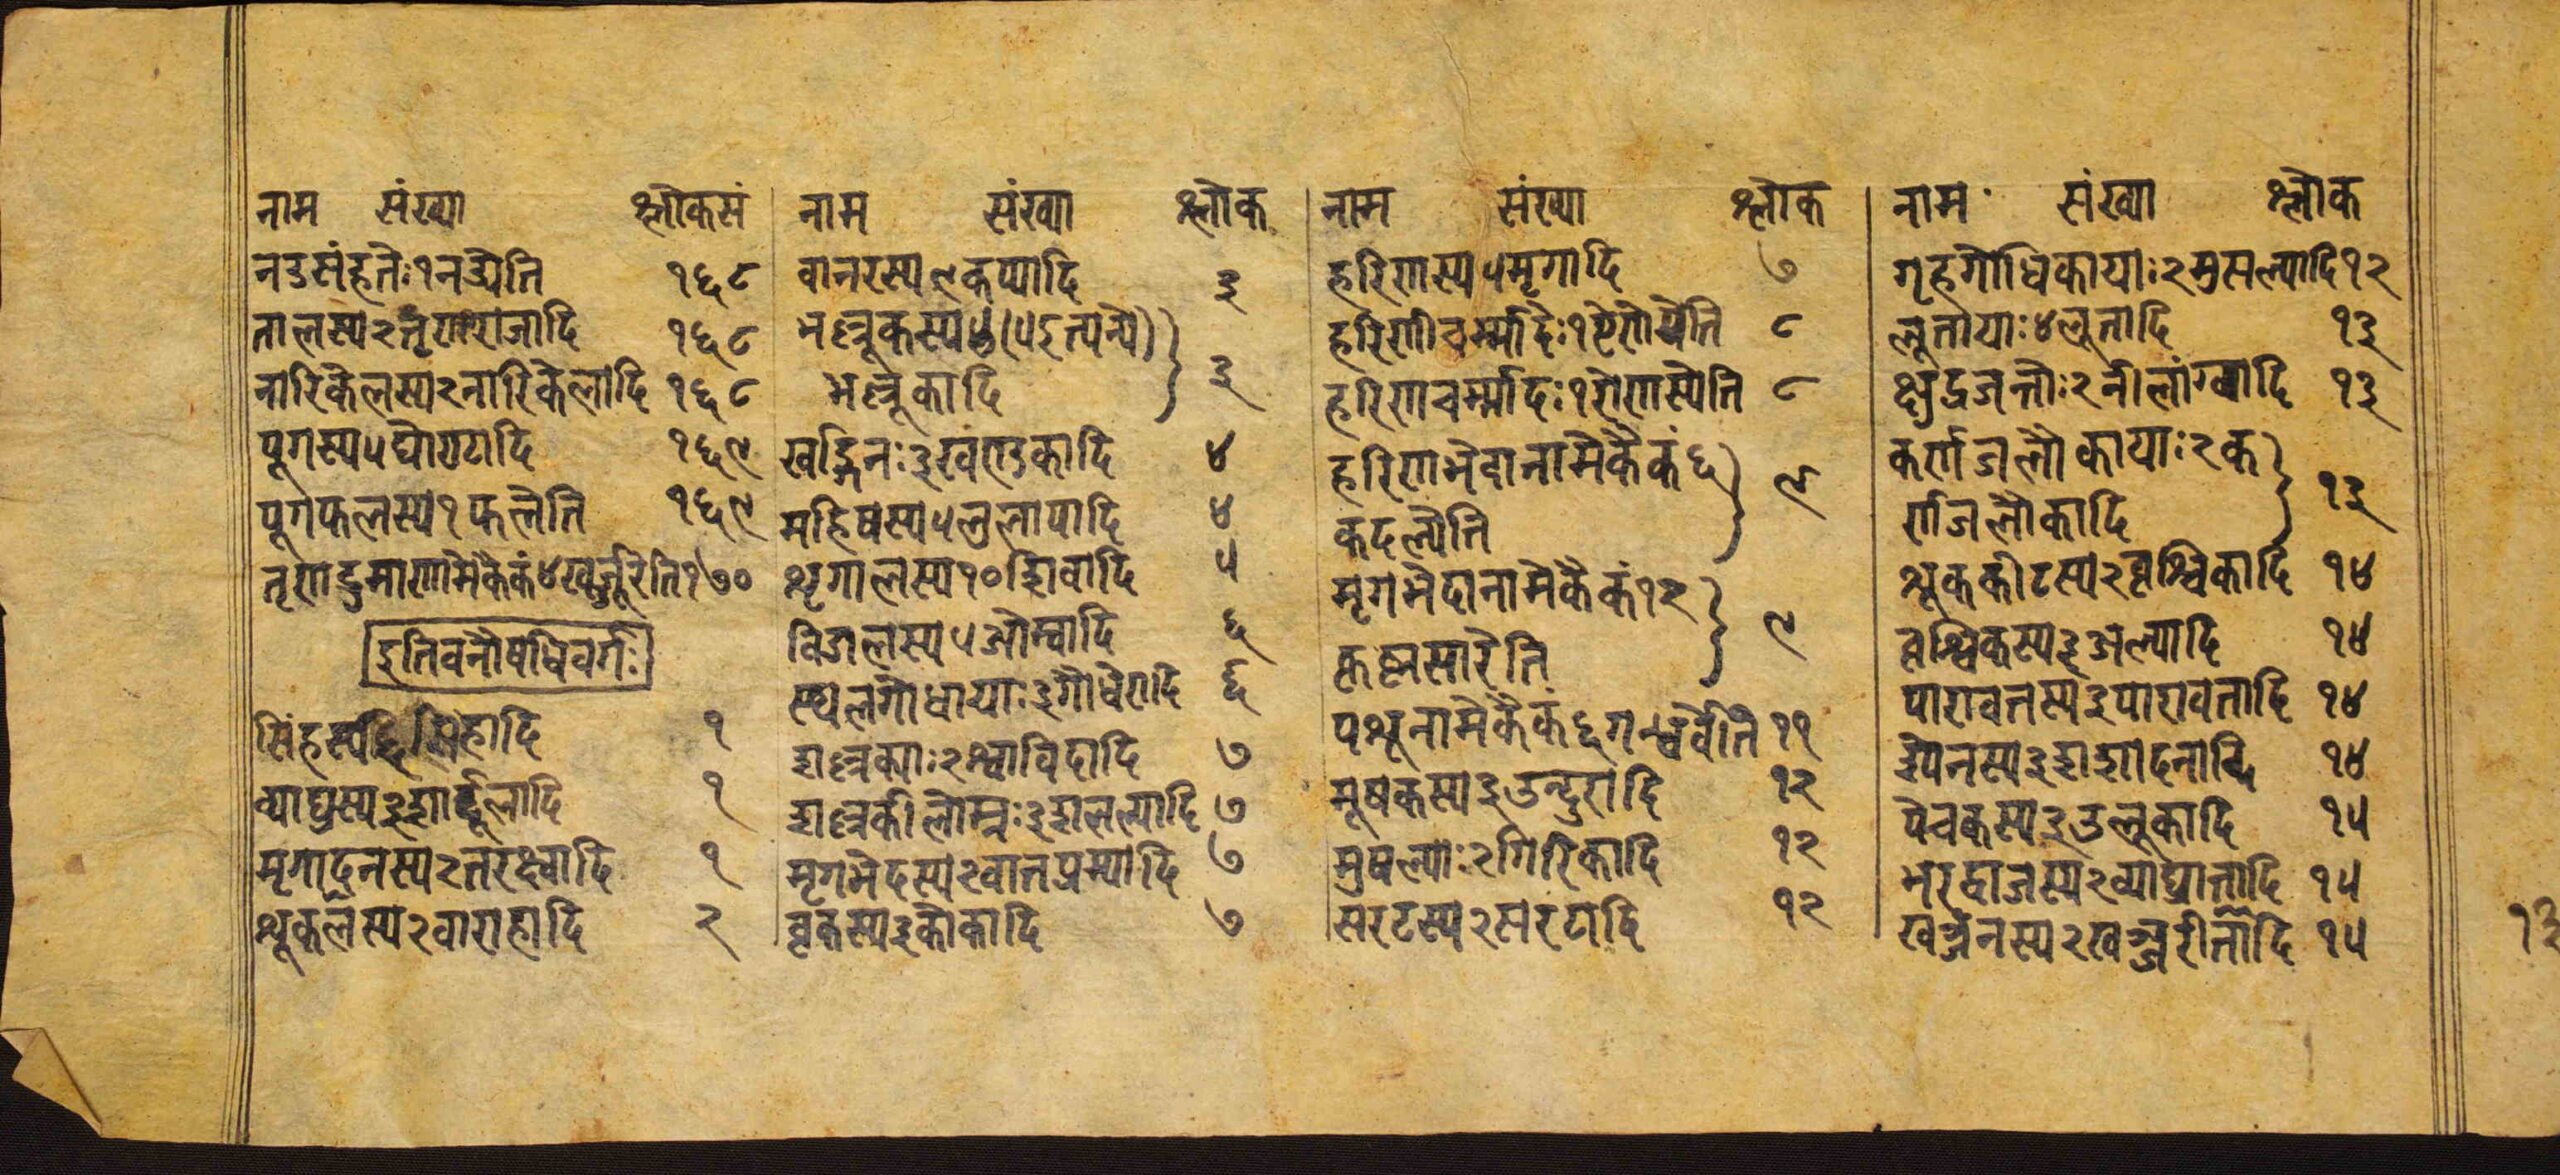 नाम संख्या श्लोकसं
नडसंहतेः१नड्येति १६८
तालस्य२तृणराजादि १६८
नारिकेलस्य२नारिकेलादि १६८
पूगस्य५घोण्टादि १६९
पूगफलस्य१फलेति १६९
तृणद्रुमाणामेकैकं४खर्ज्जूरेति १७०
इतिवनौषधिवर्गः
सिंहस्य सिंहादि १
व्याघ्रस्य३शार्द्दूलादि १
मृगादनस्य२तरक्ष्वादि १
शूकलस्य२वाराहादि २
नाम संख्या श्लोक
वानरस्य९कप्यादि ३
भल्लूकस्य४(५इत्यन्ये)
भल्लूकादि ३
खड्गिनः३खंण्डकादि ४
महिषस्य५लुलापादि ४
शृगालस्य१०शिवादि ५
विडालस्य५ओत्वादि ६
स्थलगोधायाः३गौधेरादि ६
शल्लक्याः२श्वाविदादि ७
शल्लकीलोम्नः३शलल्यादि ७
मृगभेदस्य२वातप्रम्यादि ७
वृकस्य३कोकादि ७
नाम संख्या श्लोक
हरिणस्य५मृगादि ७
हरिणीचर्म्मादेः१ऐणेयेति ८
हरिणचर्म्मादः१एणस्येति ८
हरिणभेदानामेकैकं६
कदल्येति ९
मृगभेदानामेकैकं१२
कृष्णसारेति ९
पशूनामेकैकं६गन्धर्वेति ११
मूषकस्य३उन्दुरादि १२
मुषल्याः२गिरिकादि १२
सरटस्य२सरटादि १२
नाम संख्या श्लोक
गृहगोधिकायाः२मुसल्यादि १२
लूतायाः४लूतादि १३
क्षुद्रजन्तोः२नीलांग्वादि १३
कर्णजलौकायाः२क
र्णजलौकादि १३
शूककीटस्य२वृश्चिकादि १४
वृश्चिकस्य३अल्यादि १४
पारावतस्य३पारावतादि १४
श्येनस्य३शशादनादि १४
पेचकस्य३उलूकादि १५
भरद्वाजस्य२व्याघ्राटादि १५
खञ्जनस्य२खञ्जरीटादि १५
१३